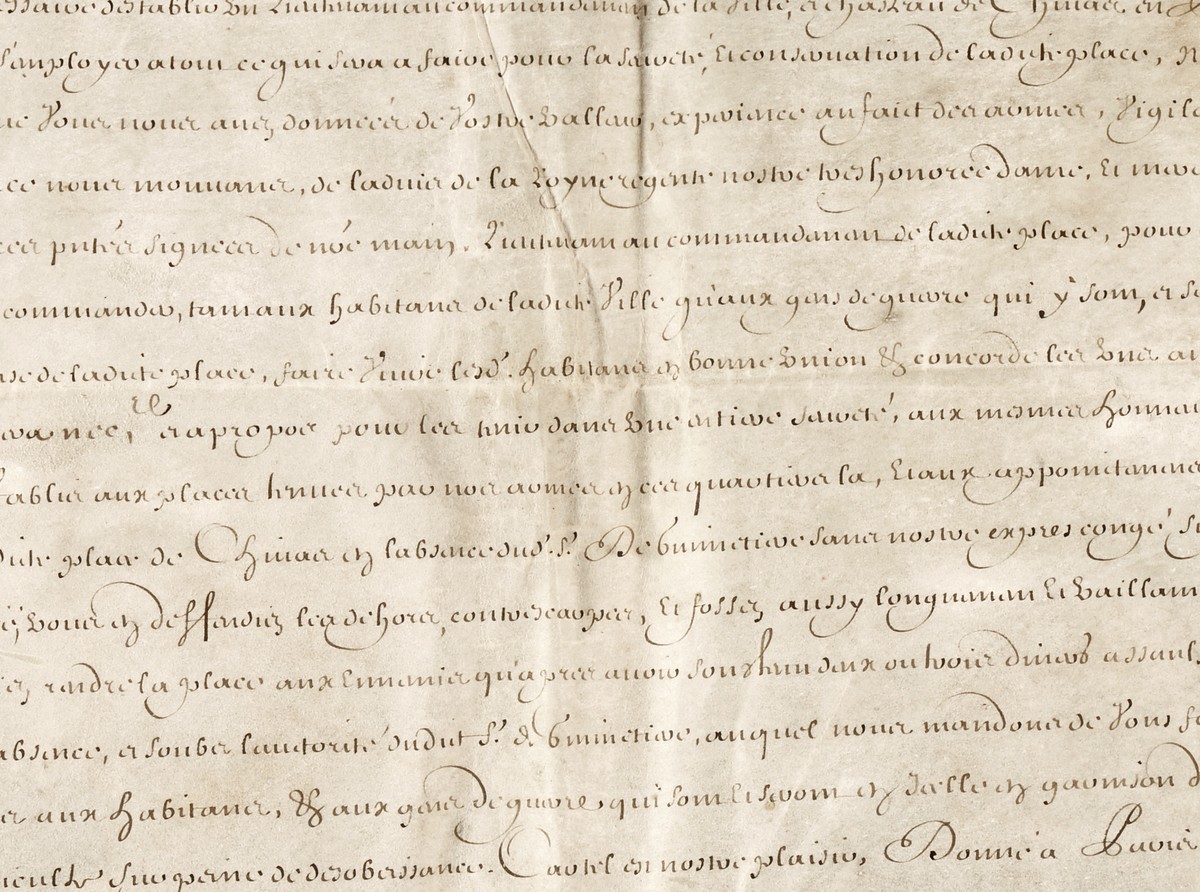 d'establir un Lieutenant au commandement de la Ville, et chasteau de Chimai en
s'employer a tout ce qui sera a faire pour la seureté, Et conservation de ladicte place,
que Vous nous avez données de Vostre Valleur, experience au fait des armes, Vigila
ce nous mouvans, de l'advis de la Royne regente nostre tres honorée dame, Et mere
ces pntes signées de nre main, Lieutenant au commandement de ladicte place, pour
commander, tant aux habitans de ladicte Ville qu'aux gens de guerre qui y sont, et se
de ladicte place, faire Vivre lesd. habitans en bonne Union & concorde les Uns au
et a propos pour les tenir dans Une entiere seureté, aux mesmes honneu
establis aux places tenues par nos armes en ces quartiers la, Et aux appointemens
dicte place de Chimai en l'absence dud. Sr. De sans nostre expres congé
Vous en deffendiez les dehors, contrescarpes, Et fossez aussy longuement Et Vaillam
rendre la place aux Ennemis qu'apres avoir soustenu deux ou trois divers assaults
absence, et soubs l'autorité dudit Sr. de auquel nous mandons de Vous f
aux habitans, & aux gens de guerre qui sont Et seront en Icelle en garnison d
sur peine de desobeissance. Car tel est nostre plaisir, Donné à Paris